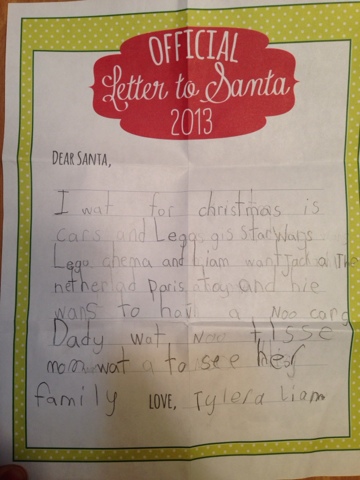 OFFICIAL
Letter to Santa
2013
DEAR SANTA,
I wat for christmas is
cars and Legos gis Star Wars
Lego chema and Liam want Jack a the
netherlad paris a tay and hie
wans to hav a Noo cars
Dady wat Noo tisse
mom wat a to see her
family LOVE, Tylera Liam